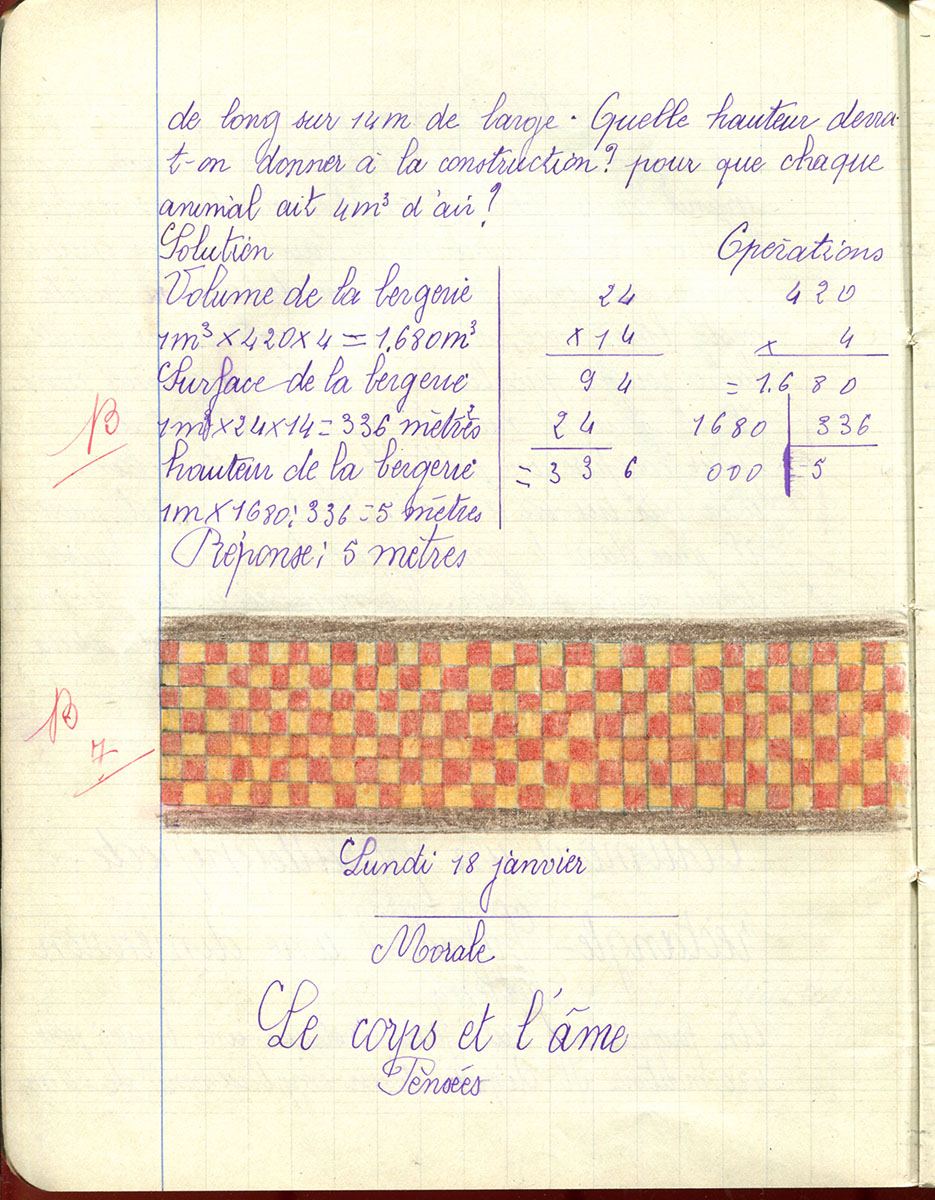 de long sur 14m de large. Quelle hauteur devra-
t-on donner à la construction? pour que chaque
animal ait 4m³ d'air?
Solution
Opérations
Volume de la bergerie
1m³ × 420 × 4 = 1.680m³
Surface de la bergerie
1m² × 24 × 14 = 336 mètres²
hauteur de la bergerie
1m × 1680 : 336 = 5 mètres
24
× 14
94
24
= 336
420
× 4
= 1.680
1680 | 336
000 | = 5
Réponse : 5 mètres
B
B
7
Lundi 18 janvier
Morale
Le corps et l'âme
Pensées